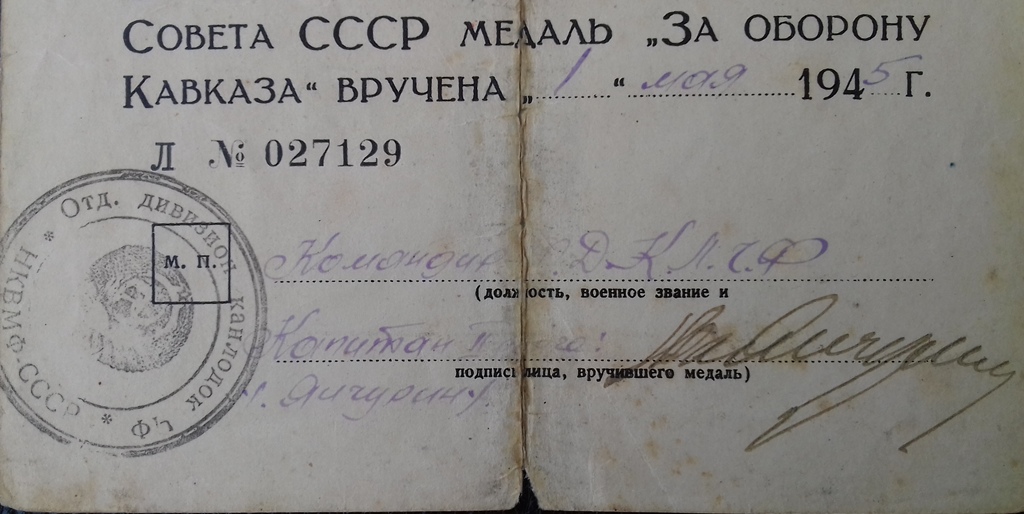 СОВЕТА СССР МЕДАЛЬ „ЗА ОБОРОНУ
КАВКАЗА“ ВРУЧЕНА „1“ мая 1945 Г.
Л № 027129
Отд. дивизион канлодок ЧФ * НКВМФ-СССР *
М. П.
Командир Д.К.Л.Ч.Ф
(должность, военное звание и
Капитан
подпись лица, вручившего медаль)
Янчурин